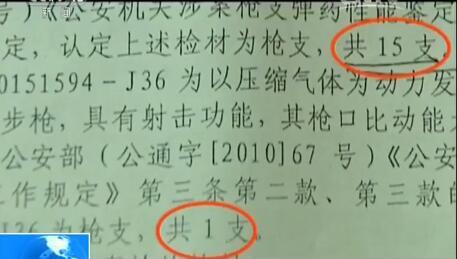 号）《公安机关涉案枪支弹药性能鉴定
定，认定上述检材为枪支，共 15 支，
0151594－J36 为以压缩气体为动力发
步枪，具有射击功能，其枪口比动能
公安部（公通字[2010]67 号）《公安
工作规定》第三条第二款、第三款的
J36 为枪支，共 1 支。